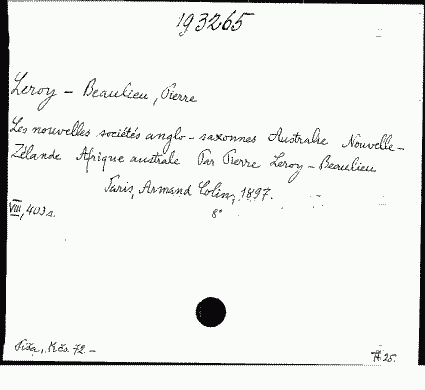 193265
Leroy - Beaulieu, Pierre
Les nouvelles sociétés anglo - saxonnes Australie Nouvelle-
Zélande Afrique australe Par Pierre Leroy - Beaulieu
Paris, Armand Colin, 1897.
VIII, 403 s. 8°
Píša, Kčs. 72 -